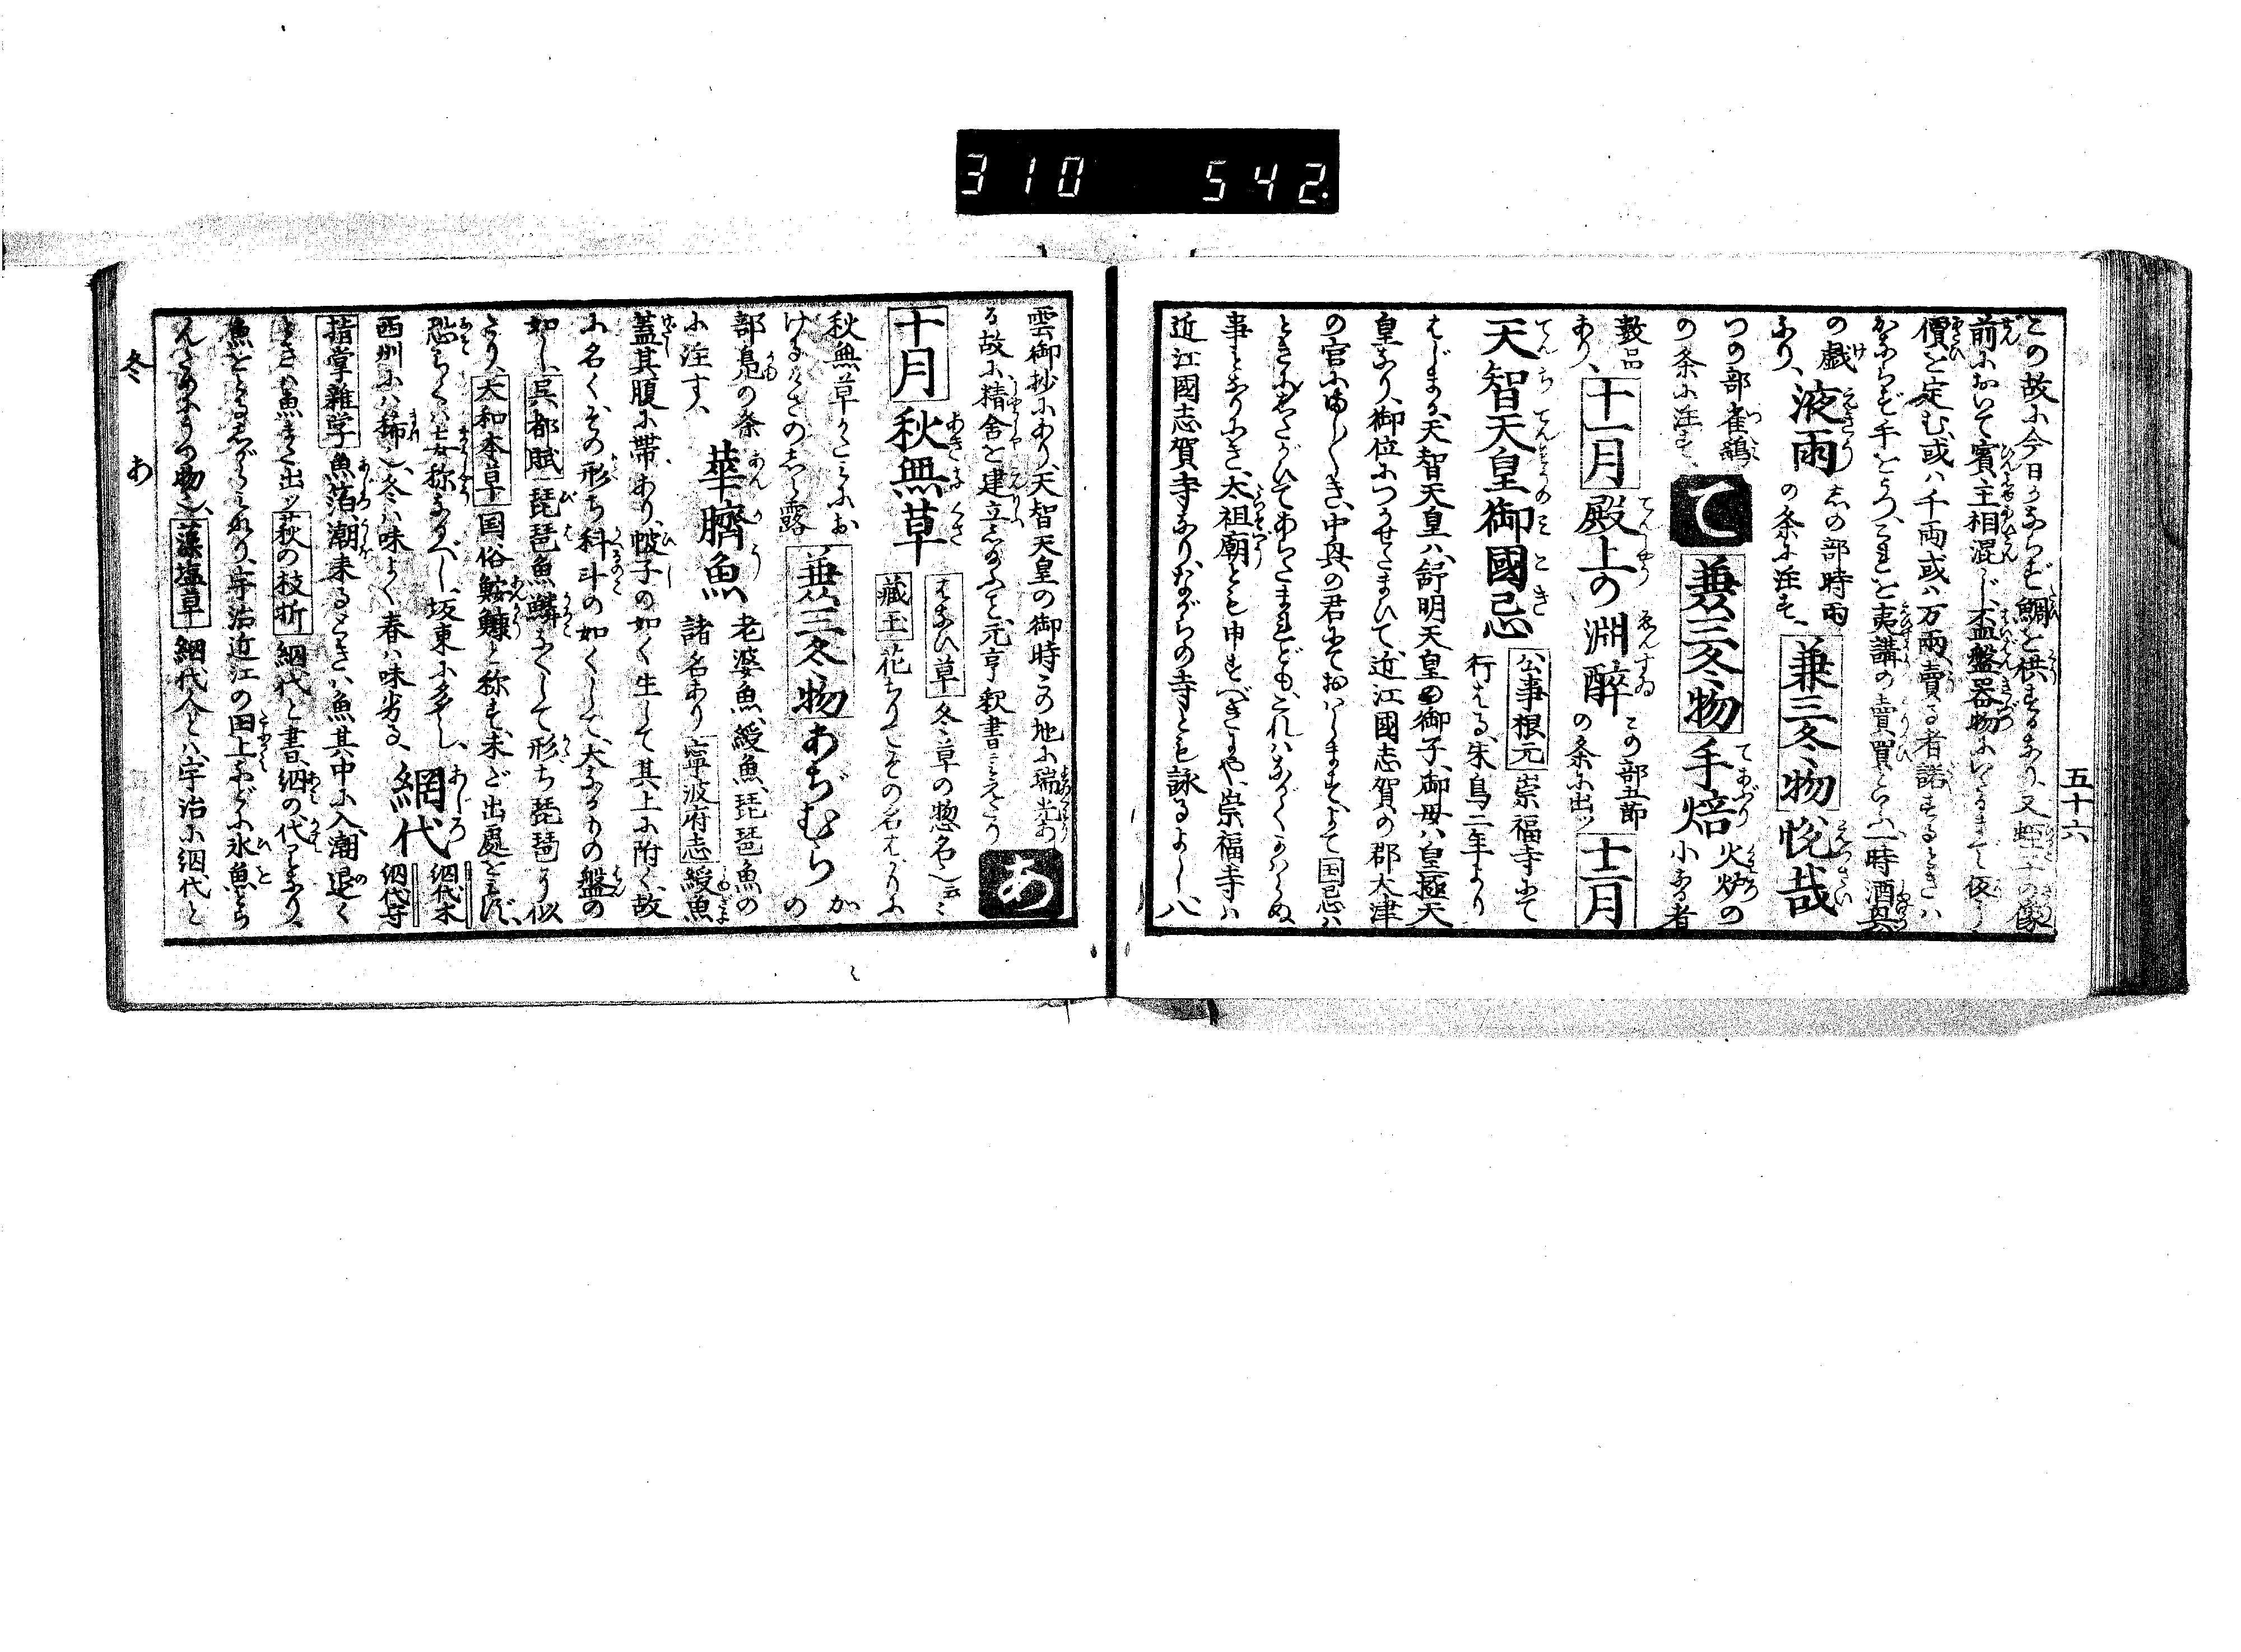 310 542.
五十六
この故に今日かならず鯛を供するなり、又蛭子の像
前において賓主相混じ、盃盤器物にいたるまで仮に
價を定む、或ハ千両或ハ万両、賣る者諾するときハ
かならず手をうつ、これを夷講の賣買といふ、一時酒興
の戯
なり、液雨 しの部時雨の条に注す、兼三冬物 悦哉
つの部雀鷂の条に注す、て 兼三冬物 手焙 火炉の小なる者
數品あり、十一月 殿上の淵醉 この部五節の条に出ツ 十二月
天智天皇御國忌 公事根元 崇福寺にて行はる、朱鳥二年より
はじまる、天智天皇ハ、舒明天皇の御子、御母ハ皇極天
皇なり、御位につかせたまひて、近江國志賀の郡大津
の宮にましましき、中興の君にておハします、よて国忌ハ
ときにしたがひてあらたまれども、これハながくかハらぬ
事となりにき、太祖廟とも申すべきにや、崇福寺ハ
近江國志賀寺なり、ながらの寺とも詠るよし、八
雲御抄にあり、天智天皇の御時この地に瑞光あ
る故に精舎を建立したまふと、元亨釈書に見えたり あ
十月 秋無草 はまひ草 冬草の惣名也云々 藏玉 花ちりてその名ばかりに
秋無草かたみにお
けるはくさのしら露 兼三冬物 あぢむら かの
部鳧の条
に注す、華臍魚 老婆魚、綬魚、琵琶魚の諸名あり 寧波府志 綬魚
蓋其腹に帯あり、帔子の如く生して其上に附く、故
に名く、その形ち科斗の如くして、大なるもの盤の
如し、呉都賦 琵琶魚、鱗なくして、形ち琵琶に似
たり、大和本草 国俗鮟鱇と称す、未ダ出處を見ず、
恐らくハ士女称なるべし、坂東に多し、網代 網代木 網代守
西州にハ稀也、冬ハ味よく春ハ味劣る、
指掌雜字 魚箔、潮来るときハ、魚其中に入、潮退く
ときハ魚まで出ツ 萩の枝折 網代と書、網の代りとなり、
魚をとるしがらみなり、宇治近江の田上などに氷魚とら
んためにうつ物也、藻塩草 網代人とハ、宇治に網代と
冬 あ